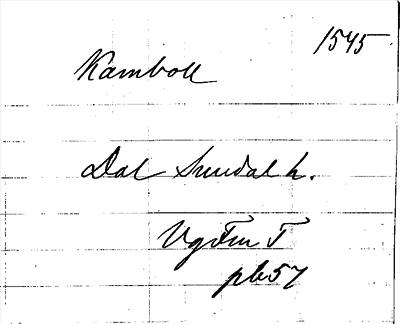 1545
Kamboll
Dal Sundal h.
Vg Fm T
pb 57